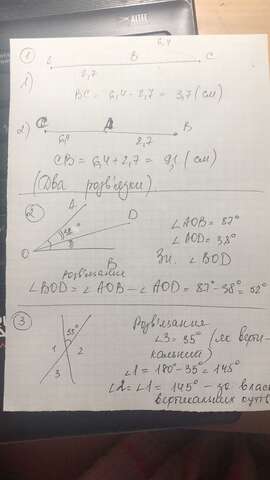 1
6,4
B C
2,7
1)
BC = 6,4 - 2,7 = 3,7 (см)
2) C A B
6,4 2,7
CB = 6,4 + 2,7 = 9,1 (см)
(Два розв'язки).
2 A
D
38°
O
B
∠AOB = 87°
∠AOD = 38°
Зн. ∠BOD
Розв'язання
∠BOD = ∠AOB - ∠AOD = 87° - 38° =
3
35°
1 2
3
Розв'язання
∠3 = 35° (як верти-
кальний)
∠1 = 180° - 35° = 145°
∠2 = ∠1 = 145° - за влас
вертикальних кутів